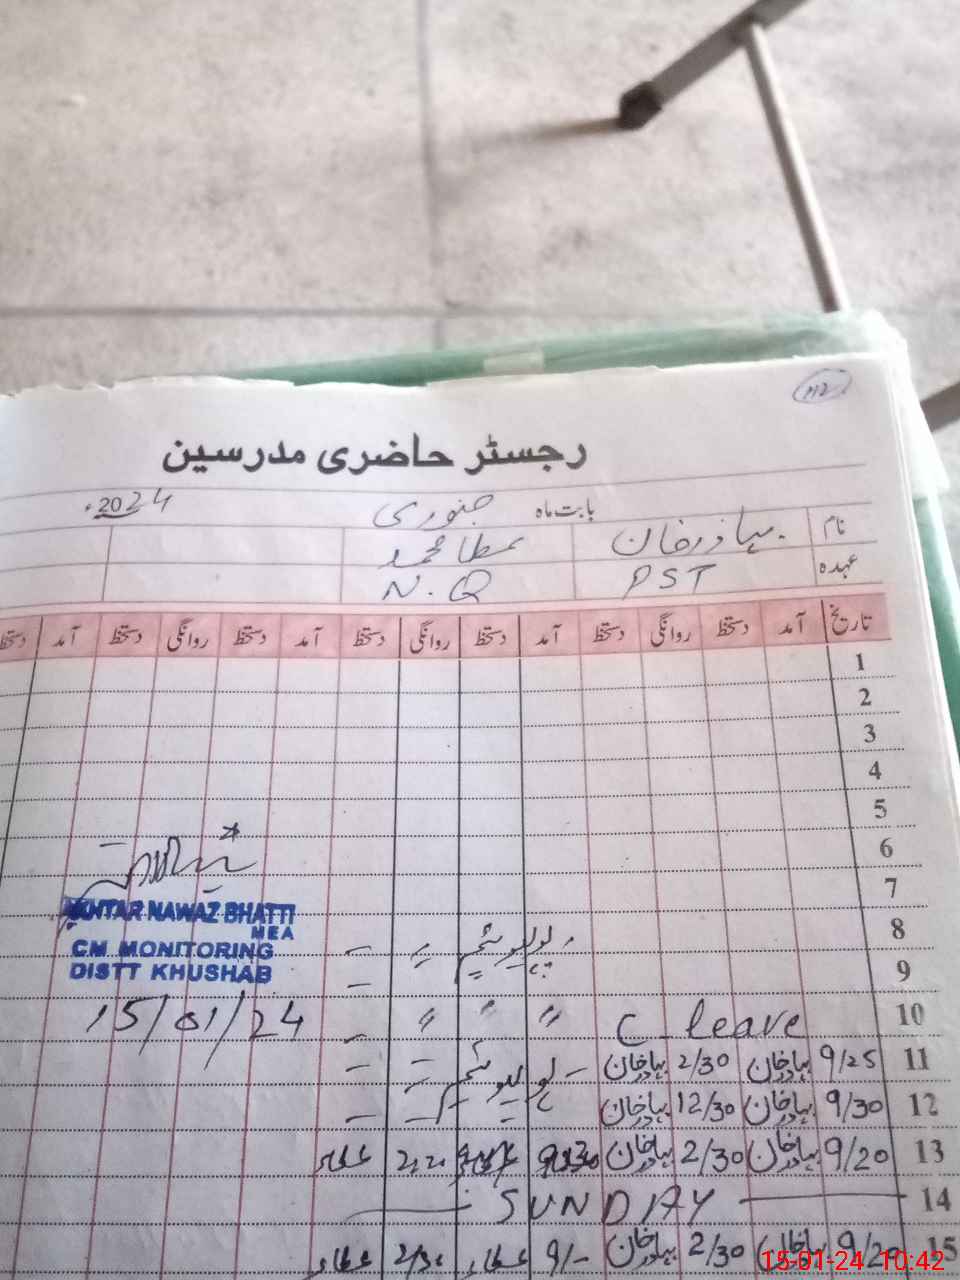 112
رجسٹر حاضری مدرسین
بابت ماہ جنوری 2024ء
نام بہادر خان عطا محمد
عہدہ PST N.Q
تاریخ آمد دستخط روانگی دستخط آمد دستخط روانگی دستخط آمد دستخط روانگی دستخط آمد دستخط
1
2
3
4
5
6
7
AKHTAR NAWAZ BHATTI
MEA
CM MONITORING
DISTT KHUSHAB
15/01/24
8 پولیو ٹیم
9
10 C_leave 〃 〃 〃
11 9/25 بہادر خان 2/30 بہادر خان پولیو ٹیم
12 9/30 بہادر خان 12/30 بہادر خان
13 9/20 بہادر خان 2/30 بہادر خان عطا
14 SUNDAY
15 9/20 بہادر خان 2/30 بہادر خان 9/- عطا 2/30 عطا
15-01-24 10:42